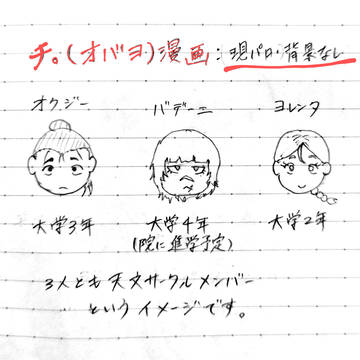 チ。(オバヨ)漫画:現パロ・背景なし
オクジー バデーニ ヨレンタ
大学3年 大学4年 大学2年
(院に進学予定)
3人とも天文サークルメンバー
というイメージです。